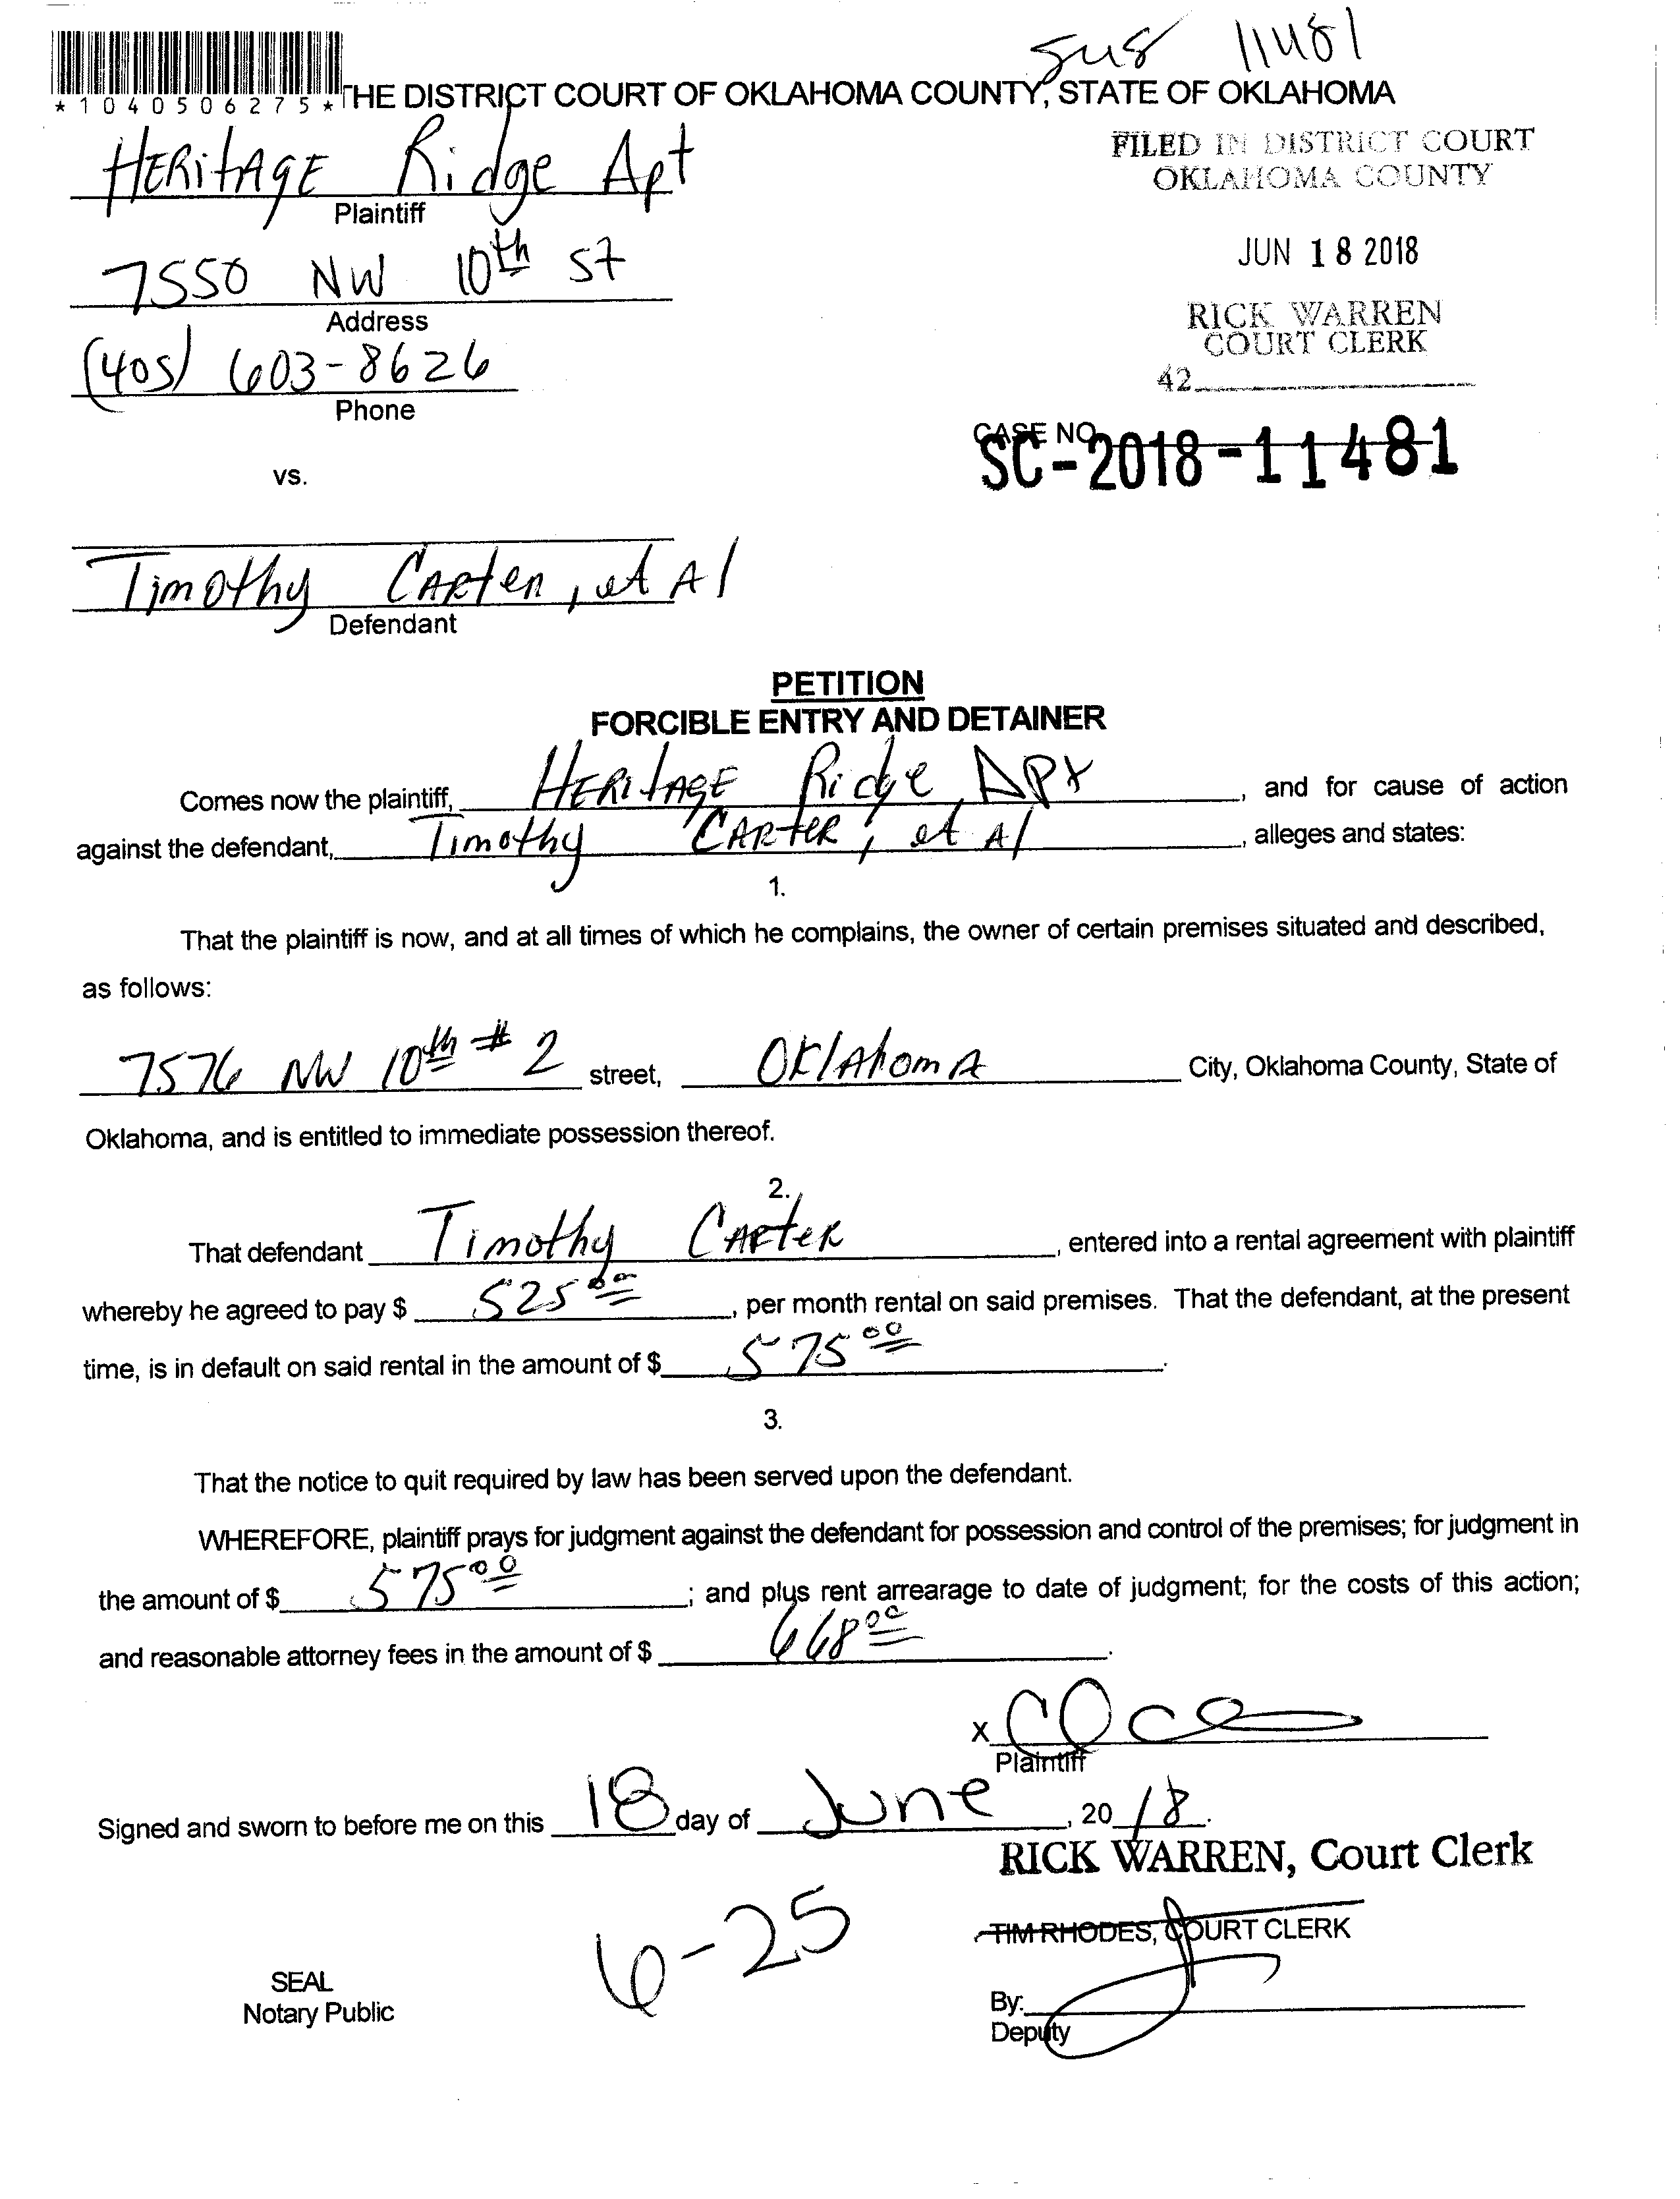 11481
*1040506275* THE DISTRICT COURT OF OKLAHOMA COUNTY, STATE OF OKLAHOMA
HERitAGE Ridge Apt
Plaintiff
FILED IN DISTRICT COURT
OKLAHOMA COUNTY
7550 NW 10th St
Address
JUN 18 2018
(405) 603-8626
Phone
RICK WARREN
COURT CLERK
42
CASE NO.
SC-2018-11481
vs.
Timothy CARter, et Al
Defendant
PETITION
FORCIBLE ENTRY AND DETAINER
Comes now the plaintiff, HERitAGE Ridge Apt, and for cause of action
against the defendant, Timothy CARteR, et Al, alleges and states:
1.
That the plaintiff is now, and at all times of which he complains, the owner of certain premises situated and described,
as follows:
7576 NW 10th # 2 street, OklAhomA City, Oklahoma County, State of
Oklahoma, and is entitled to immediate possession thereof.
2.
That defendant Timothy CARteR, entered into a rental agreement with plaintiff
whereby he agreed to pay $ 525 00, per month rental on said premises. That the defendant, at the present
time, is in default on said rental in the amount of $ 575 00.
3.
That the notice to quit required by law has been served upon the defendant.
WHEREFORE, plaintiff prays for judgment against the defendant for possession and control of the premises; for judgment in
the amount of $ 575 00; and plus rent arrearage to date of judgment; for the costs of this action;
and reasonable attorney fees in the amount of $ 668 00.
X
Plaintiff
Signed and sworn to before me on this 18 day of June, 20 18.
RICK WARREN, Court Clerk
6-25
TIM RHODES, COURT CLERK
SEAL
Notary Public
By:
Deputy